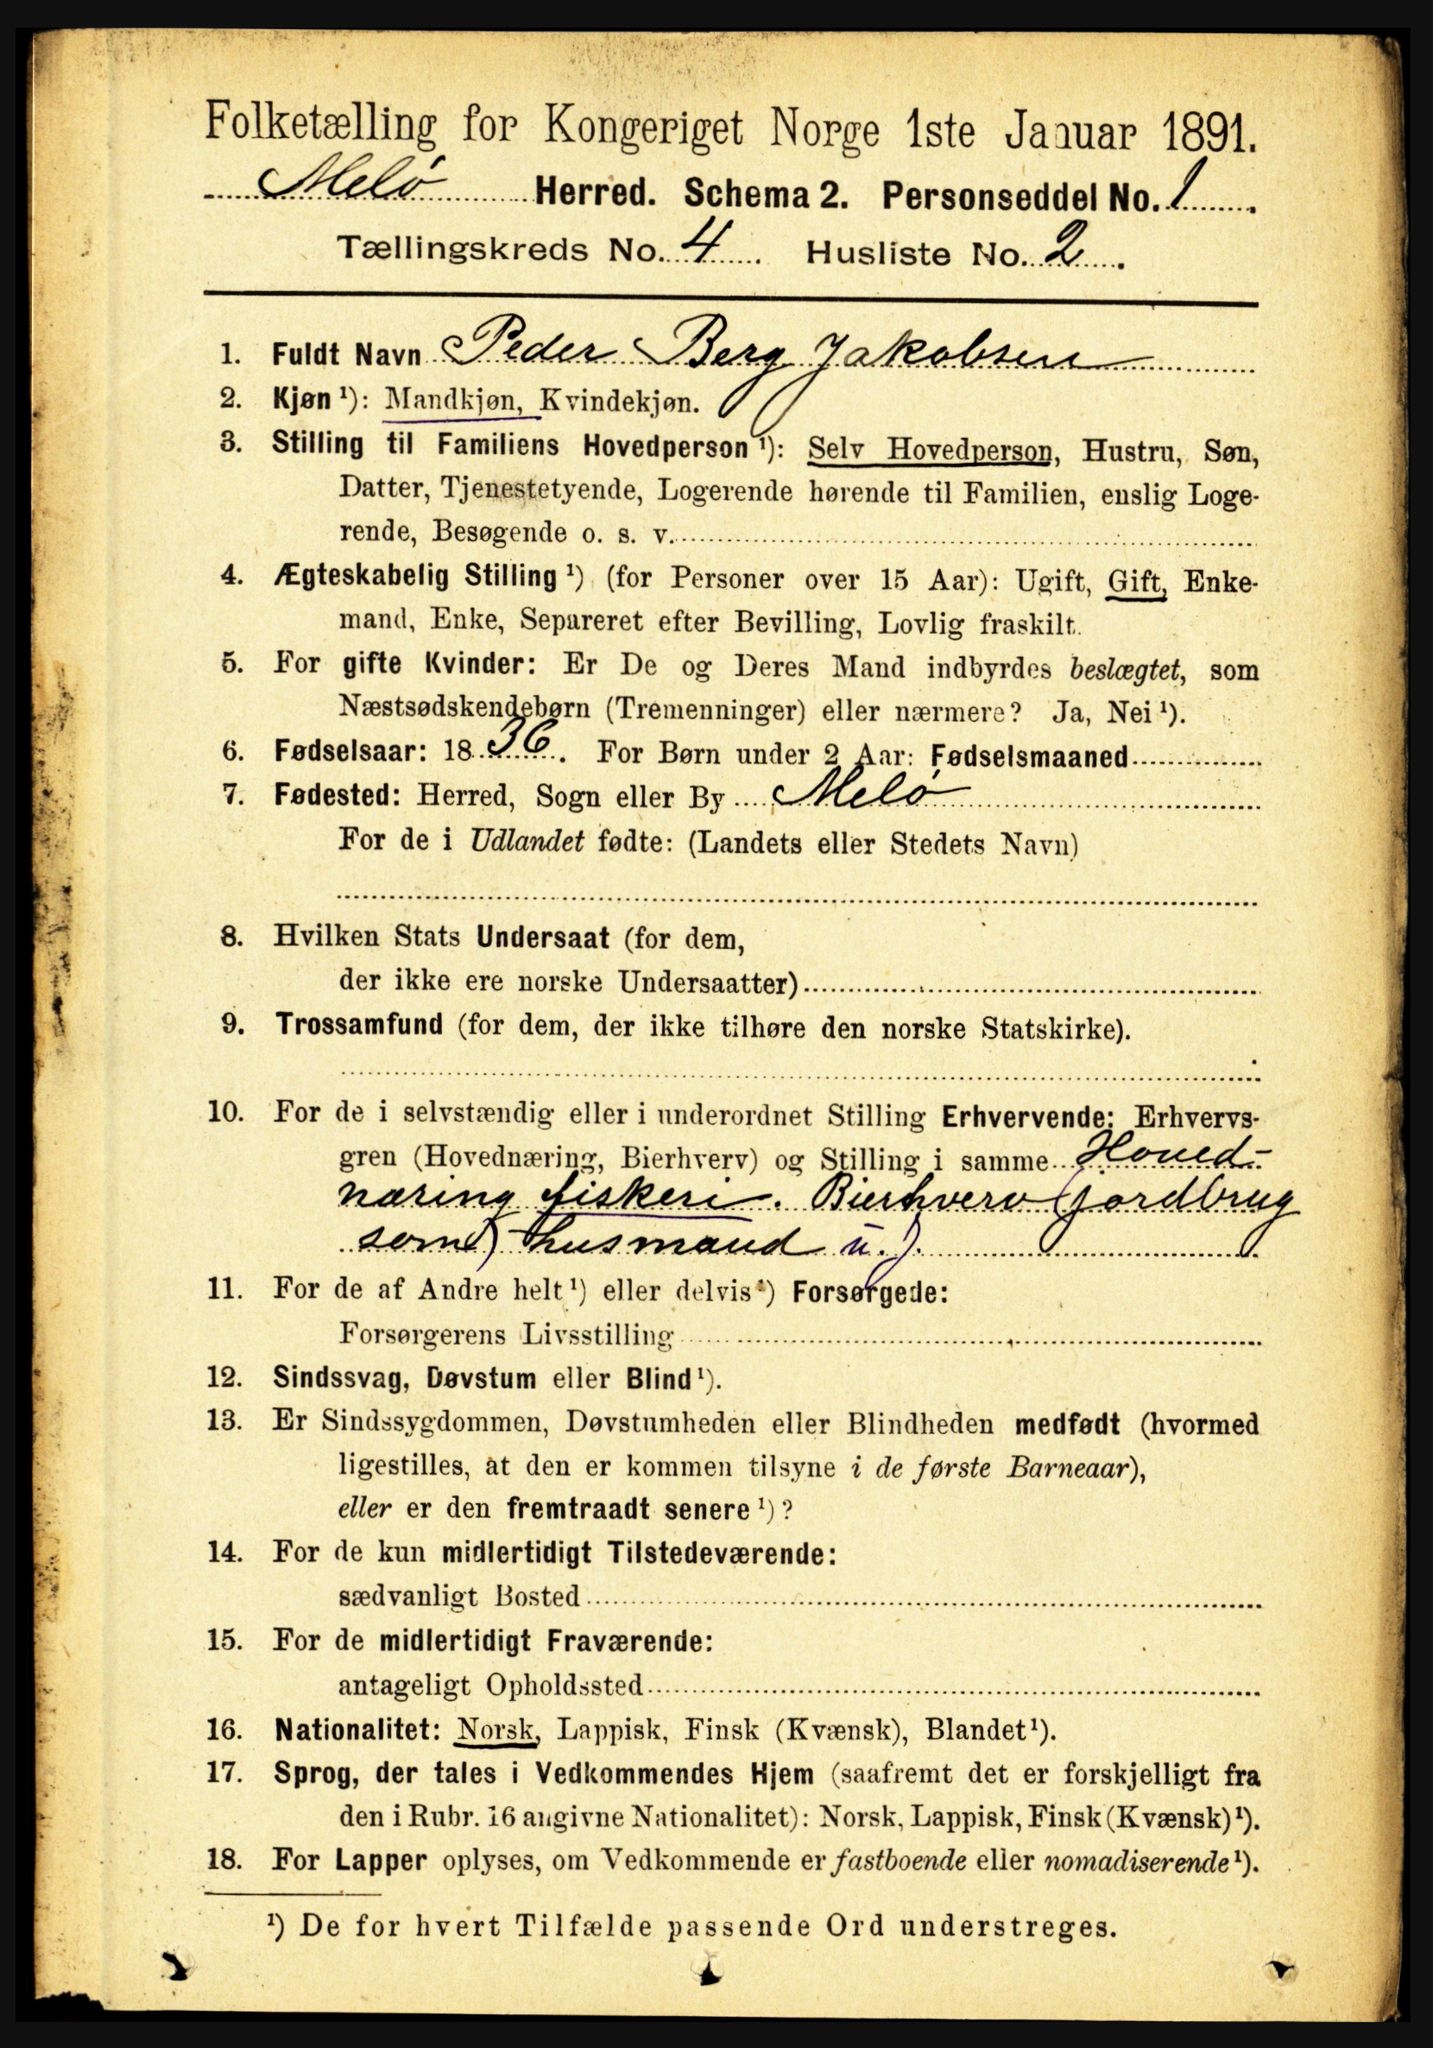 Folketælling for Kongeriget Norge 1ste Januar 1891.
Melø Herred. Schema 2. Personseddel No. 1
Tællingskreds No. 4. Husliste No. 2.
1. Fuldt Navn Peder Berg Jakobsen
2. Kjøn ¹): Mandkjøn, Kvindekjøn.
3. Stilling til Familiens Hovedperson ¹): Selv Hovedperson, Hustru, Søn,
Datter, Tjenestetyende, Logerende hørende til Familien, enslig Loge-
rende, Besøgende o. s. v.
4. Ægteskabelig Stilling ¹) (for Personer over 15 Aar): Ugift, Gift, Enke-
mand, Enke, Separeret efter Bevilling, Lovlig fraskilt.
5. For gifte Kvinder: Er De og Deres Mand indbyrdes beslægtet, som
Næstsødskendebørn (Tremenninger) eller nærmere? Ja, Nei ¹).
6. Fødselsaar: 1836. For Børn under 2 Aar: Fødselsmaaned
7. Fødested: Herred, Sogn eller By Melø
For de i Udlandet fødte: (Landets eller Stedets Navn)
8. Hvilken Stats Undersaat (for dem,
der ikke ere norske Undersaatter)
9. Trossamfund (for dem, der ikke tilhøre den norske Statskirke).
10. For de i selvstændig eller i underordnet Stilling Erhvervende: Erhvervs-
gren (Hovednæring, Bierhverv) og Stilling i samme Hoved-
næring fiskeri. Bierhverv (jordbrug
som) husmand u. j.
11. For de af Andre helt ¹) eller delvis ¹) Forsørgede:
Forsørgerens Livsstilling
12. Sindssvag, Døvstum eller Blind ¹).
13. Er Sindssygdommen, Døvstumheden eller Blindheden medfødt (hvormed
ligestilles, at den er kommen tilsyne i de første Barneaar),
eller er den fremtraadt senere ¹)?
14. For de kun midlertidigt Tilstedeværende:
sædvanligt Bosted
15. For de midlertidigt Fraværende:
antageligt Opholdssted
16. Nationalitet: Norsk, Lappisk, Finsk (Kvænsk), Blandet ¹).
17. Sprog, der tales i Vedkommendes Hjem (saafremt det er forskjelligt fra
den i Rubr. 16 angivne Nationalitet): Norsk, Lappisk, Finsk (Kvænsk) ¹).
18. For Lapper oplyses, om Vedkommende er fastboende eller nomadiserende ¹).
¹) De for hvert Tilfælde passende Ord understreges.